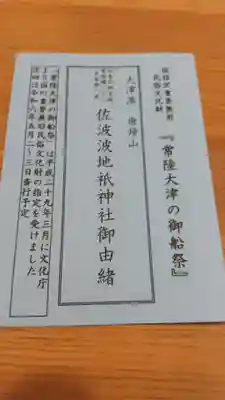 国指定重要無形
民俗文化財
『常陸大津の御船祭』
大津港 唐帰山
佐波波地祇神社御由緒
『常陸大津の御船祭』は平成二十九年三月に文化庁
より国の重要無形民俗文化財の指定を受けました
次回は令和六年五月二〜三日斎行予定